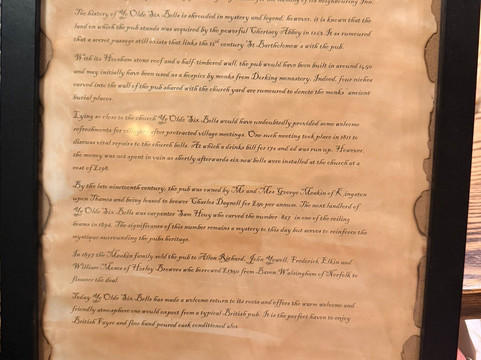 neighbouring Inn.
The history of Ye Olde Six Bells is shrouded in mystery and legend; however, it is known that the
land on which the pub stands was acquired by the powerful Chertsey Abbey in It is rumoured
that a secret passage still exists that links the century St Bartholomew's with the pub.
With its Horsham stone roof and a half-timbered wall, the pub would have been built in around 1450
and may initially have been used as a hospice by monks from Dorking monastery. Indeed, four niches
carved into the wall of the pub shared with the church yard are rumoured to denote the monks' ancient
burial places.
Lying so close to the church Ye Olde Six Bells would have undoubtedly provided some welcome
refreshments for after protracted village meetings. One such meeting took place in 1811 to
discuss vital repairs to the church bells. At which a drinks bill for and was run up. However,
the money was not spent in vain as shortly afterwards six new bells were installed at the church at a
cost of
By the late nineteenth century, the pub was owned by Mr and Mrs George Meakin of Kingston
upon Thames and being leased to brewer Charles Dagnall for £90 per annum. The next landlord of
Ye Olde Six Bells was carpenter Sam Huxy who carved the number 827 in one of the ceiling
beams in The significance of this number remains a mystery to this day but serves to reinforce the
mystique surrounding the pubs heritage.
In 1897 the Meakin family sold the pub to Allen Richard, John Yowell, Frederick Elkin and
William Morse of Horley Brewers who borrowed from Baron Walsingham of Norfolk to
finance the deal.
Today Ye Olde Six Bells has made a welcome return to its roots and offers the warm welcome and
friendly atmosphere one would expect from a typical British pub. It is the perfect haven to enjoy
British Fayre and fine hand poured cask conditioned ales.